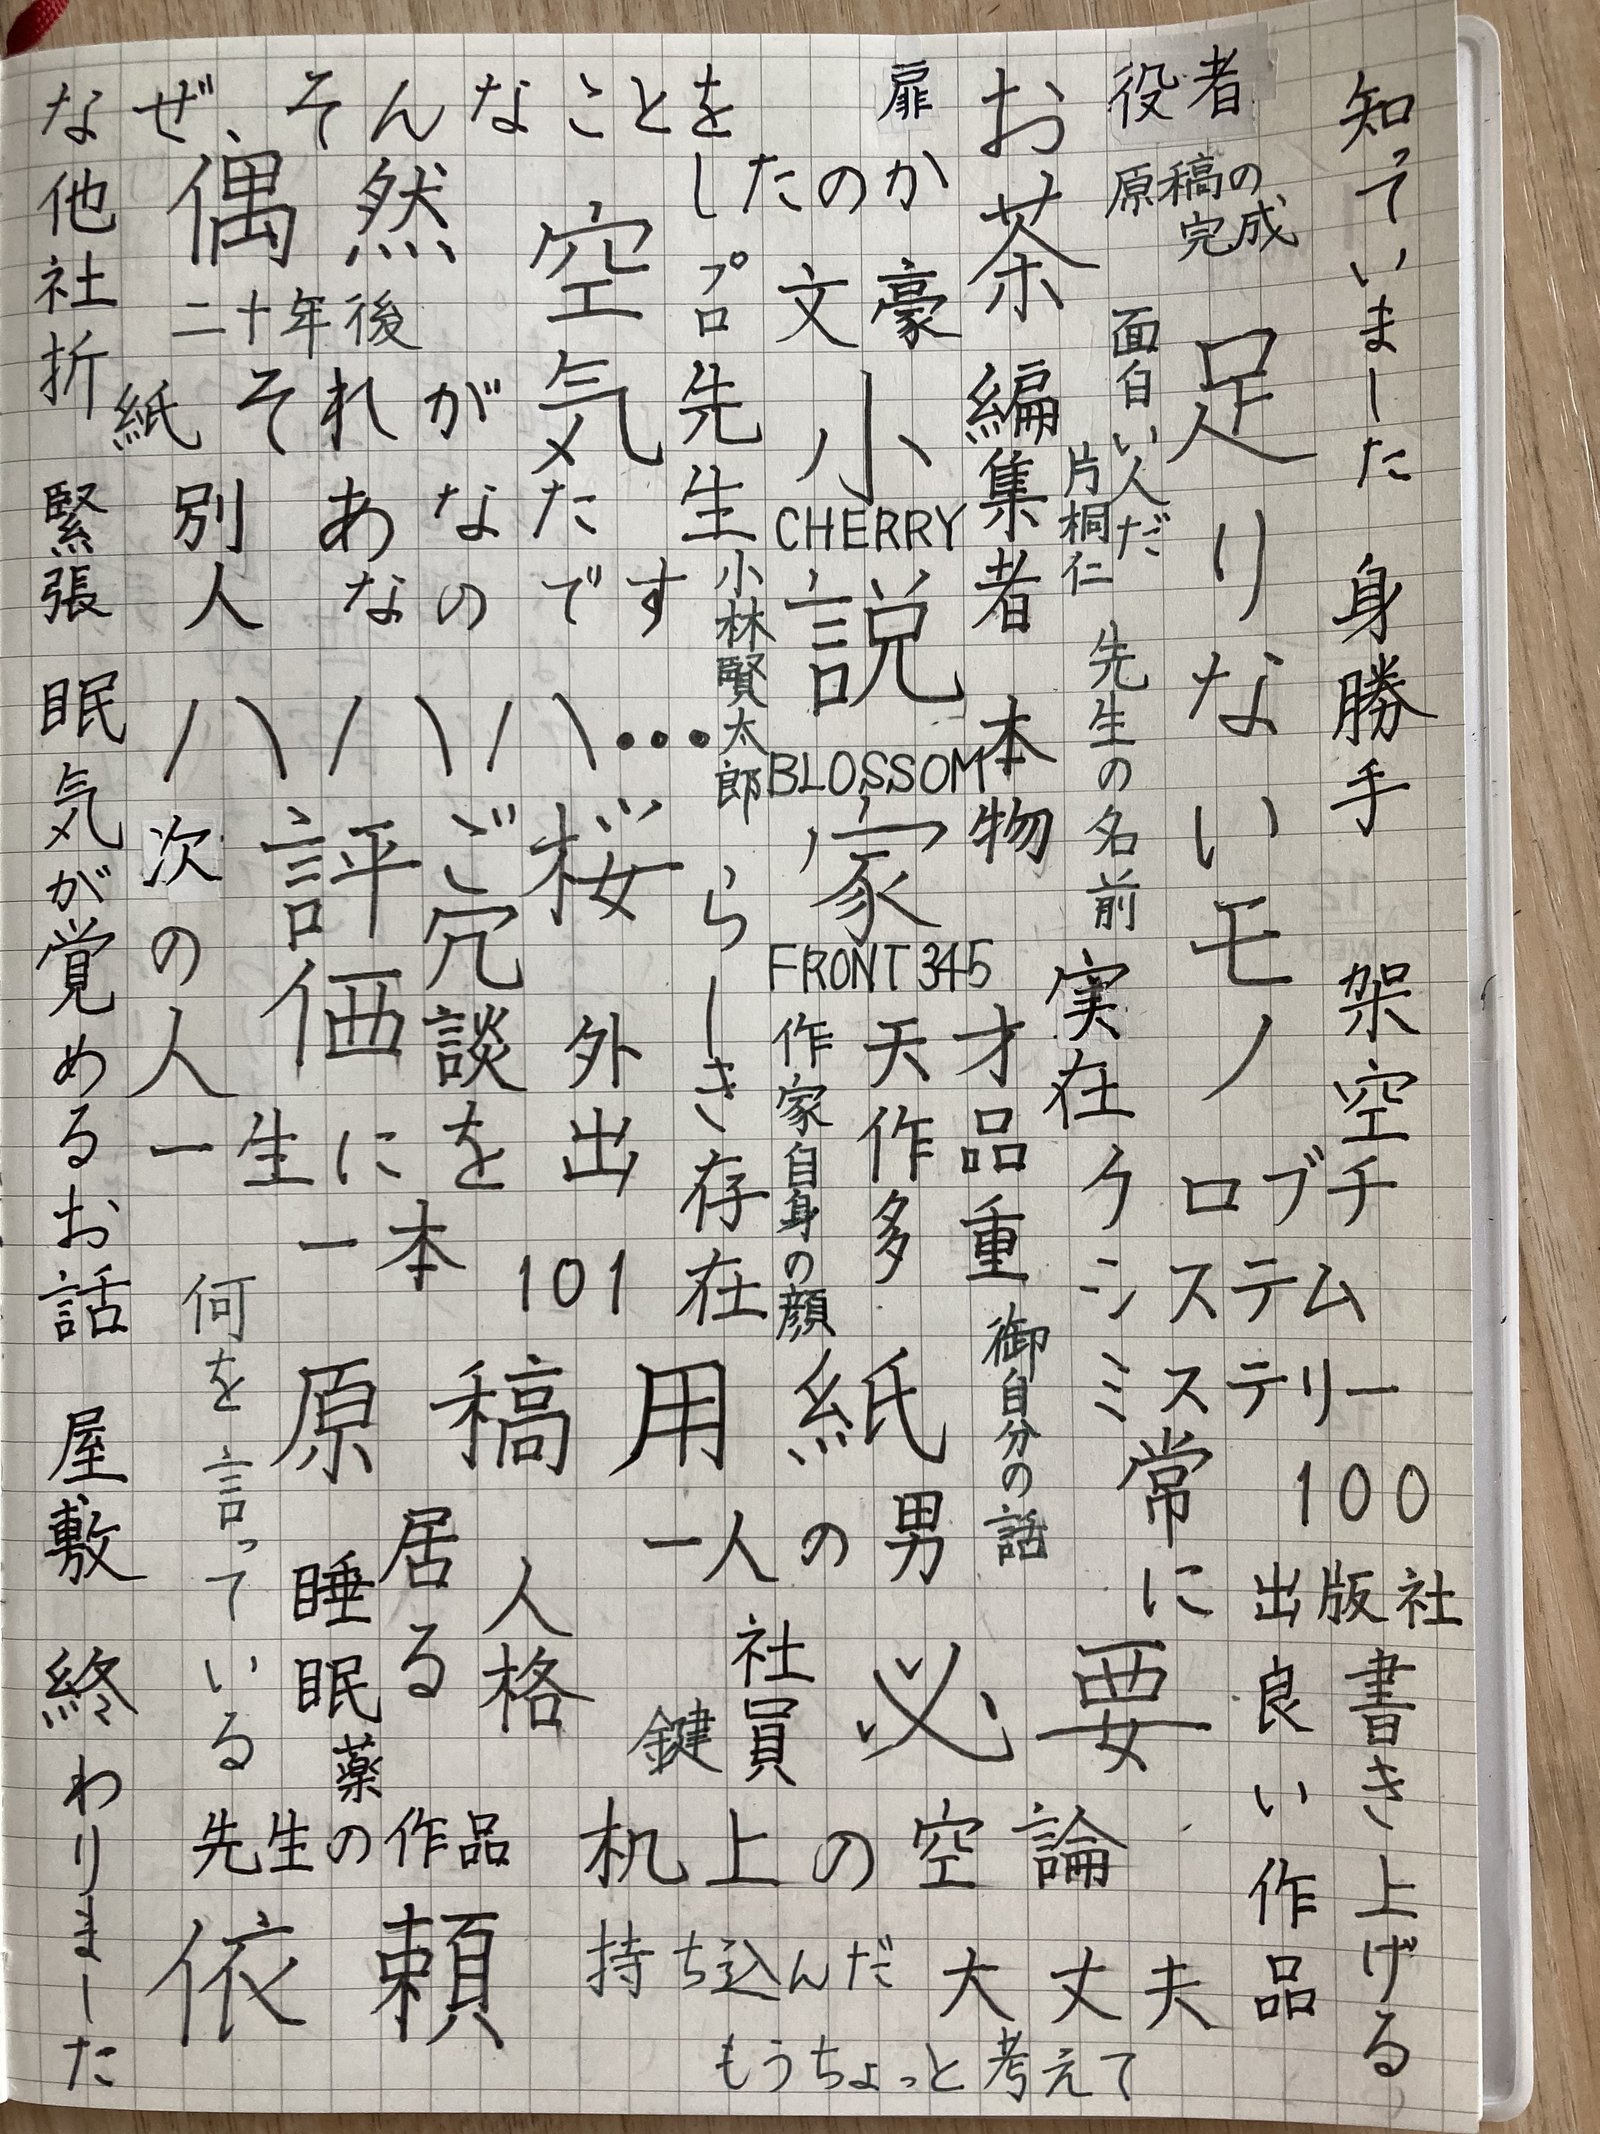 知っていました
身勝手
架空
書き上げる
役者
原稿の
完成
足りないモノ
面白い人だ
片桐仁
先生の名前
実在
クロブチ
システム
ミステリー
100
常に
出版社
良い作品
お茶
編集者
本物
扉
なぜ、そんなことを
したのか
文豪
小説家
CHERRY
BLOSSOM
FRONT 345
プロ
先生
小林賢太郎
らしき存在
作家自身の顔
天才
作品
多重
御自分の話
空気
偶然
二十年後
それが
あなた
なのです
別人
ハハハ・・・
桜
ご冗談を
評価
次の人
外出
一生に
一本
101
原稿用紙
一人の男
居る
人格
睡眠薬
社員
鍵
必要
何を言っている
先生の作品
机上の空論
依頼
持ち込んだ
大丈夫
もうちょっと考えて
他社
折紙
緊張
眠気が覚めるお話
屋敷
終わりました